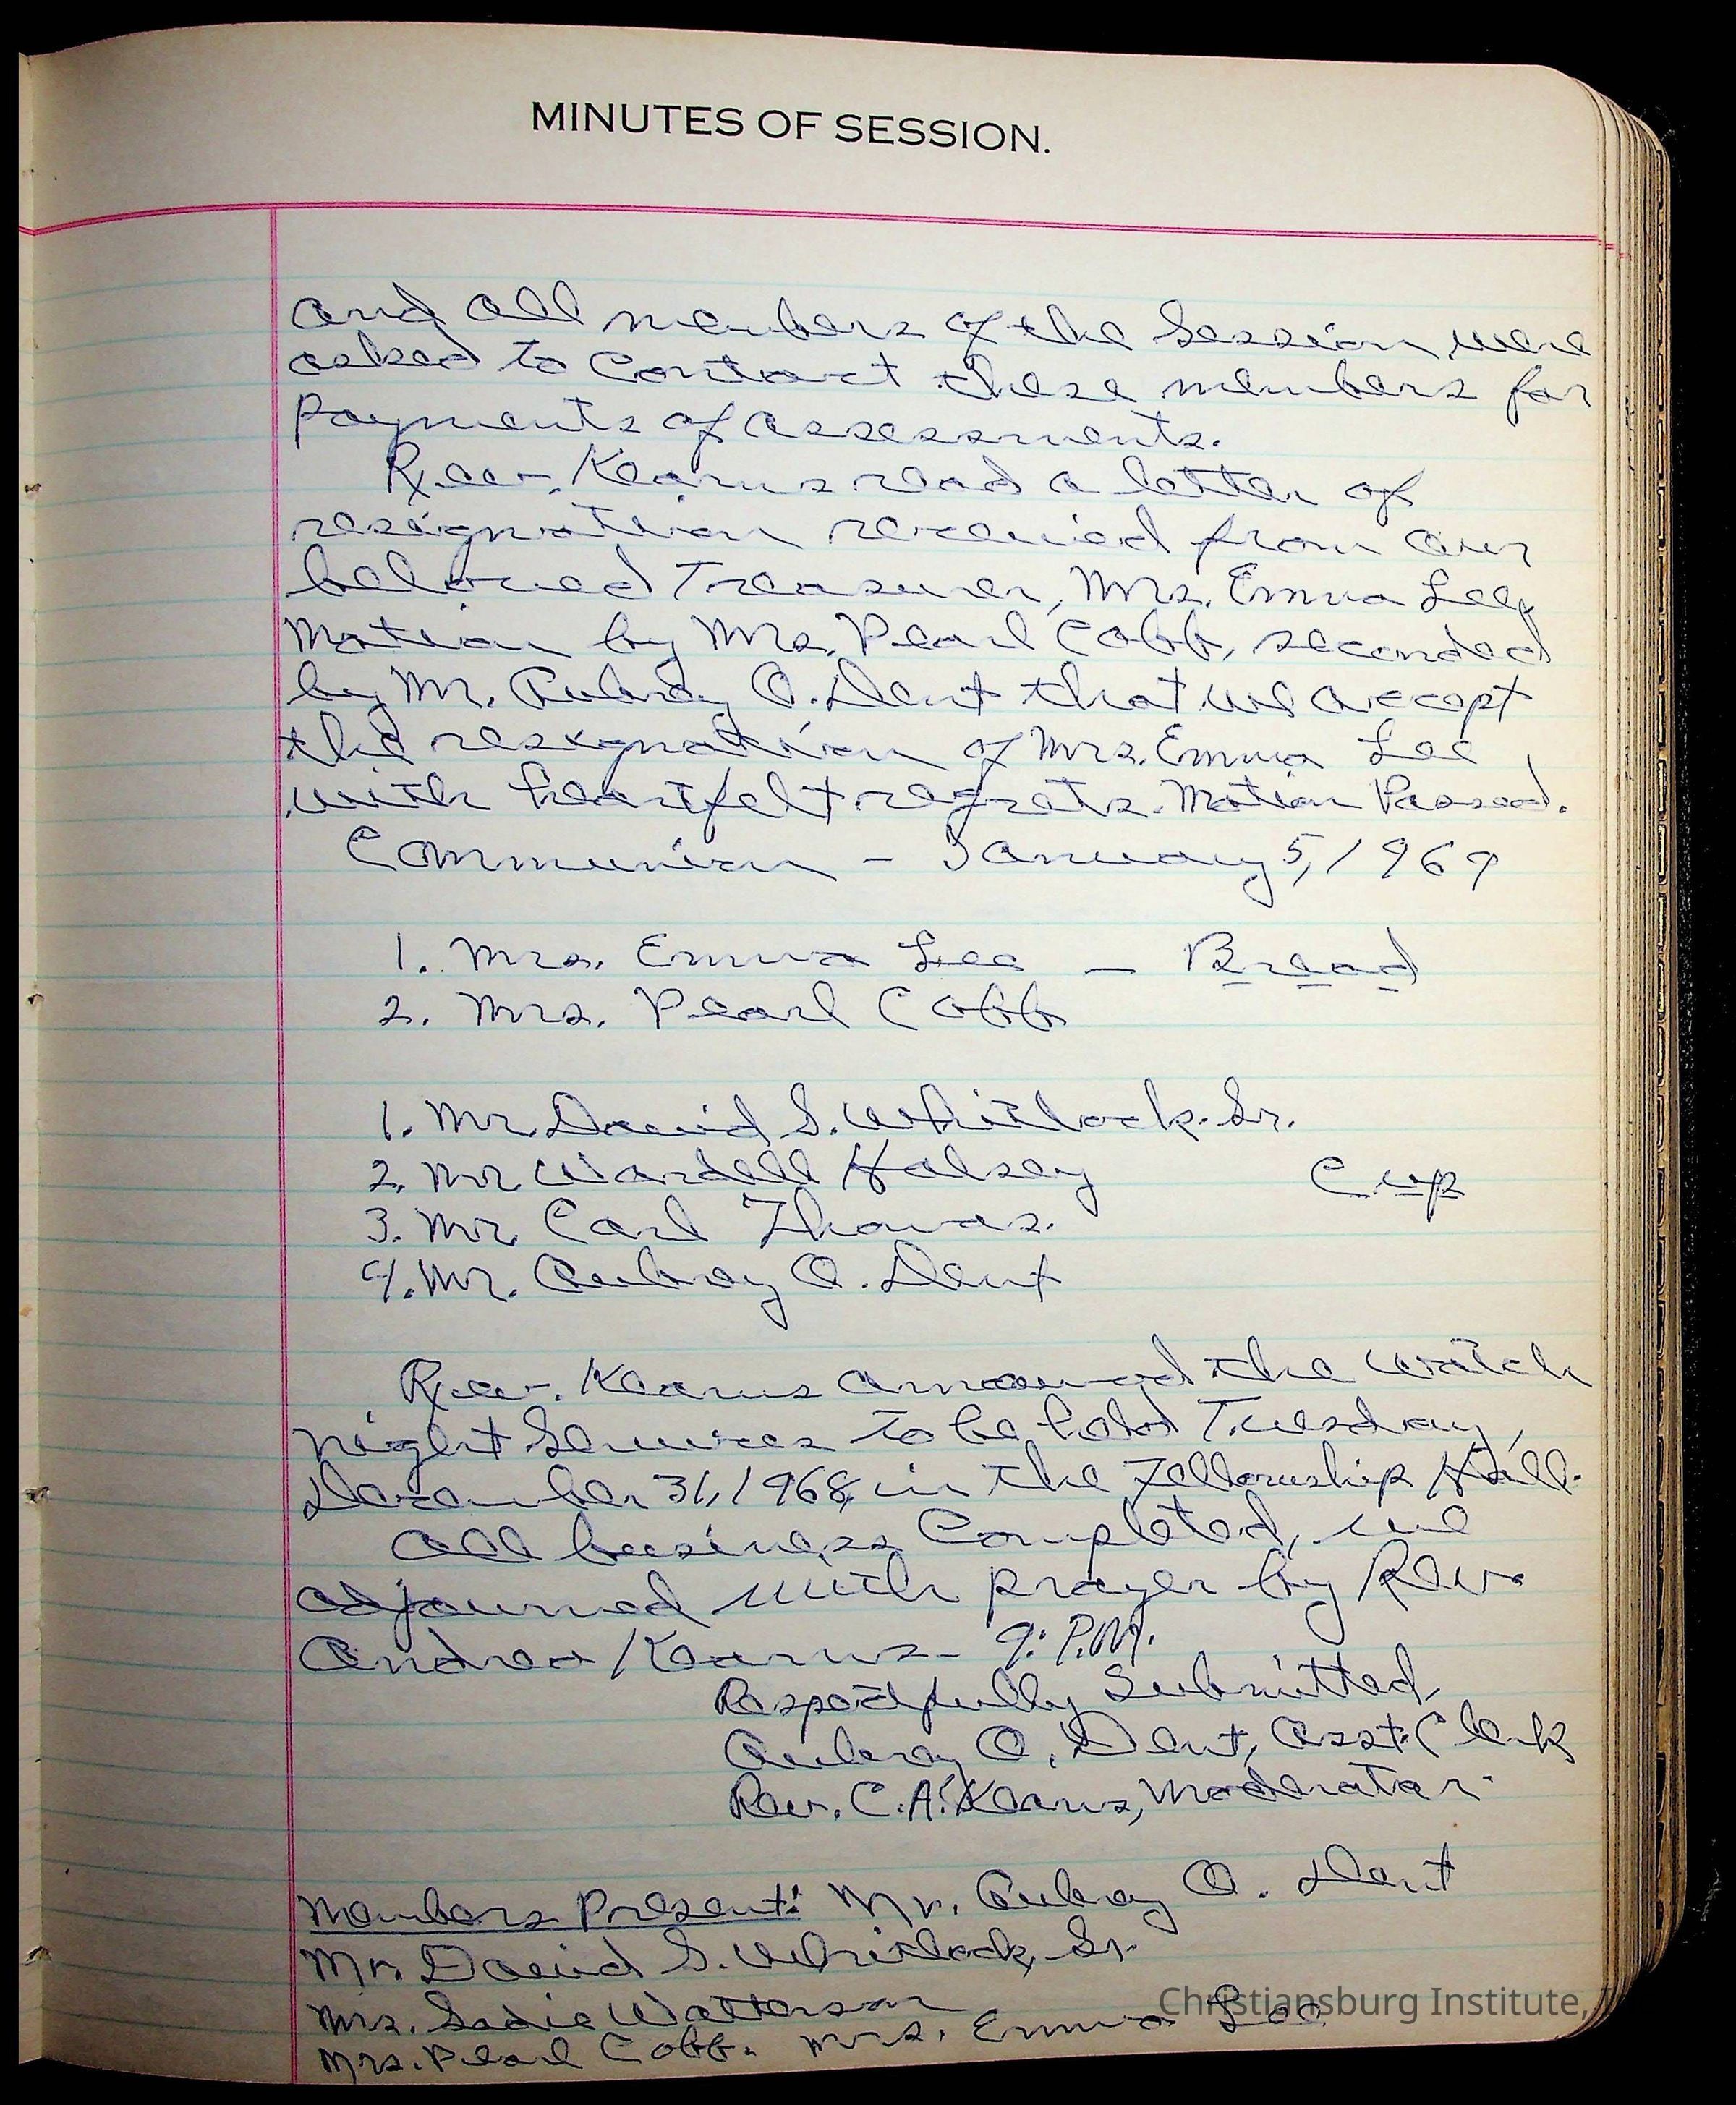 MINUTES OF SESSION.
and all members of the Session were
asked to contact these members for
Payments of assessments.
Rev. Kearns read a letter of
resignation received from our
beloved Treasurer, Mrs. Emma Lee,
Motion by Mrs. Pearl Cobb, seconded
by Mr. Aubray O. Dent that we accept
the resignation of Mrs. Emma Lee,
with heartfelt regrets. Motion Passed.
Communion - January 5, 1969
1. Mrs. Emma Lee — Bread
2. Mrs. Pearl Cobb
1. Mr. David S. Whitlock. Sr.
2. Mr. Wardell Halsey Cup
3. Mr. Carl Thomas.
4. Mr. Aubray O. Dent
Rev. Kearns the Watch
Night Services to be held Tuesday,
December 31, 1968, in the Fellowship Hall.
All business Completed, we
adjourned with prayer by Rev.
Andrea Kearns - 9: P.M.
Respectfully Submitted,
Aubray O. Dent, Asst. Clerk
Rev. C.A. Kearns, Moderator
Members Present: Mr. Aubray O. Dent
Mr. David S. Whitlock, Sr.
Mrs. Sadie Watterson
Mrs. Pearl Cobb. Mrs. Emma Lee
Christiansburg Institute,